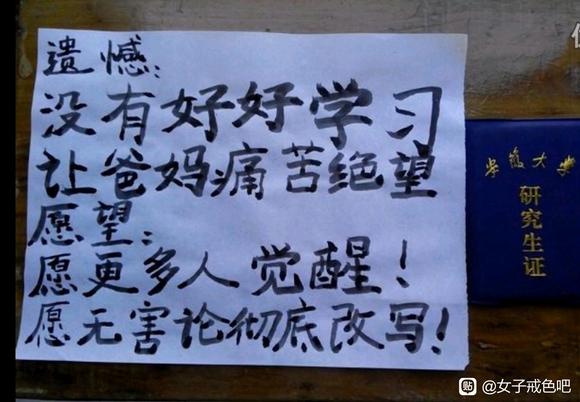 遗憾:
没有好好学习
让爸妈痛苦绝望
愿望:
愿更多人觉醒!
愿无害论彻底改写!
安徽大学
研究生证
贴 @女子戒色吧